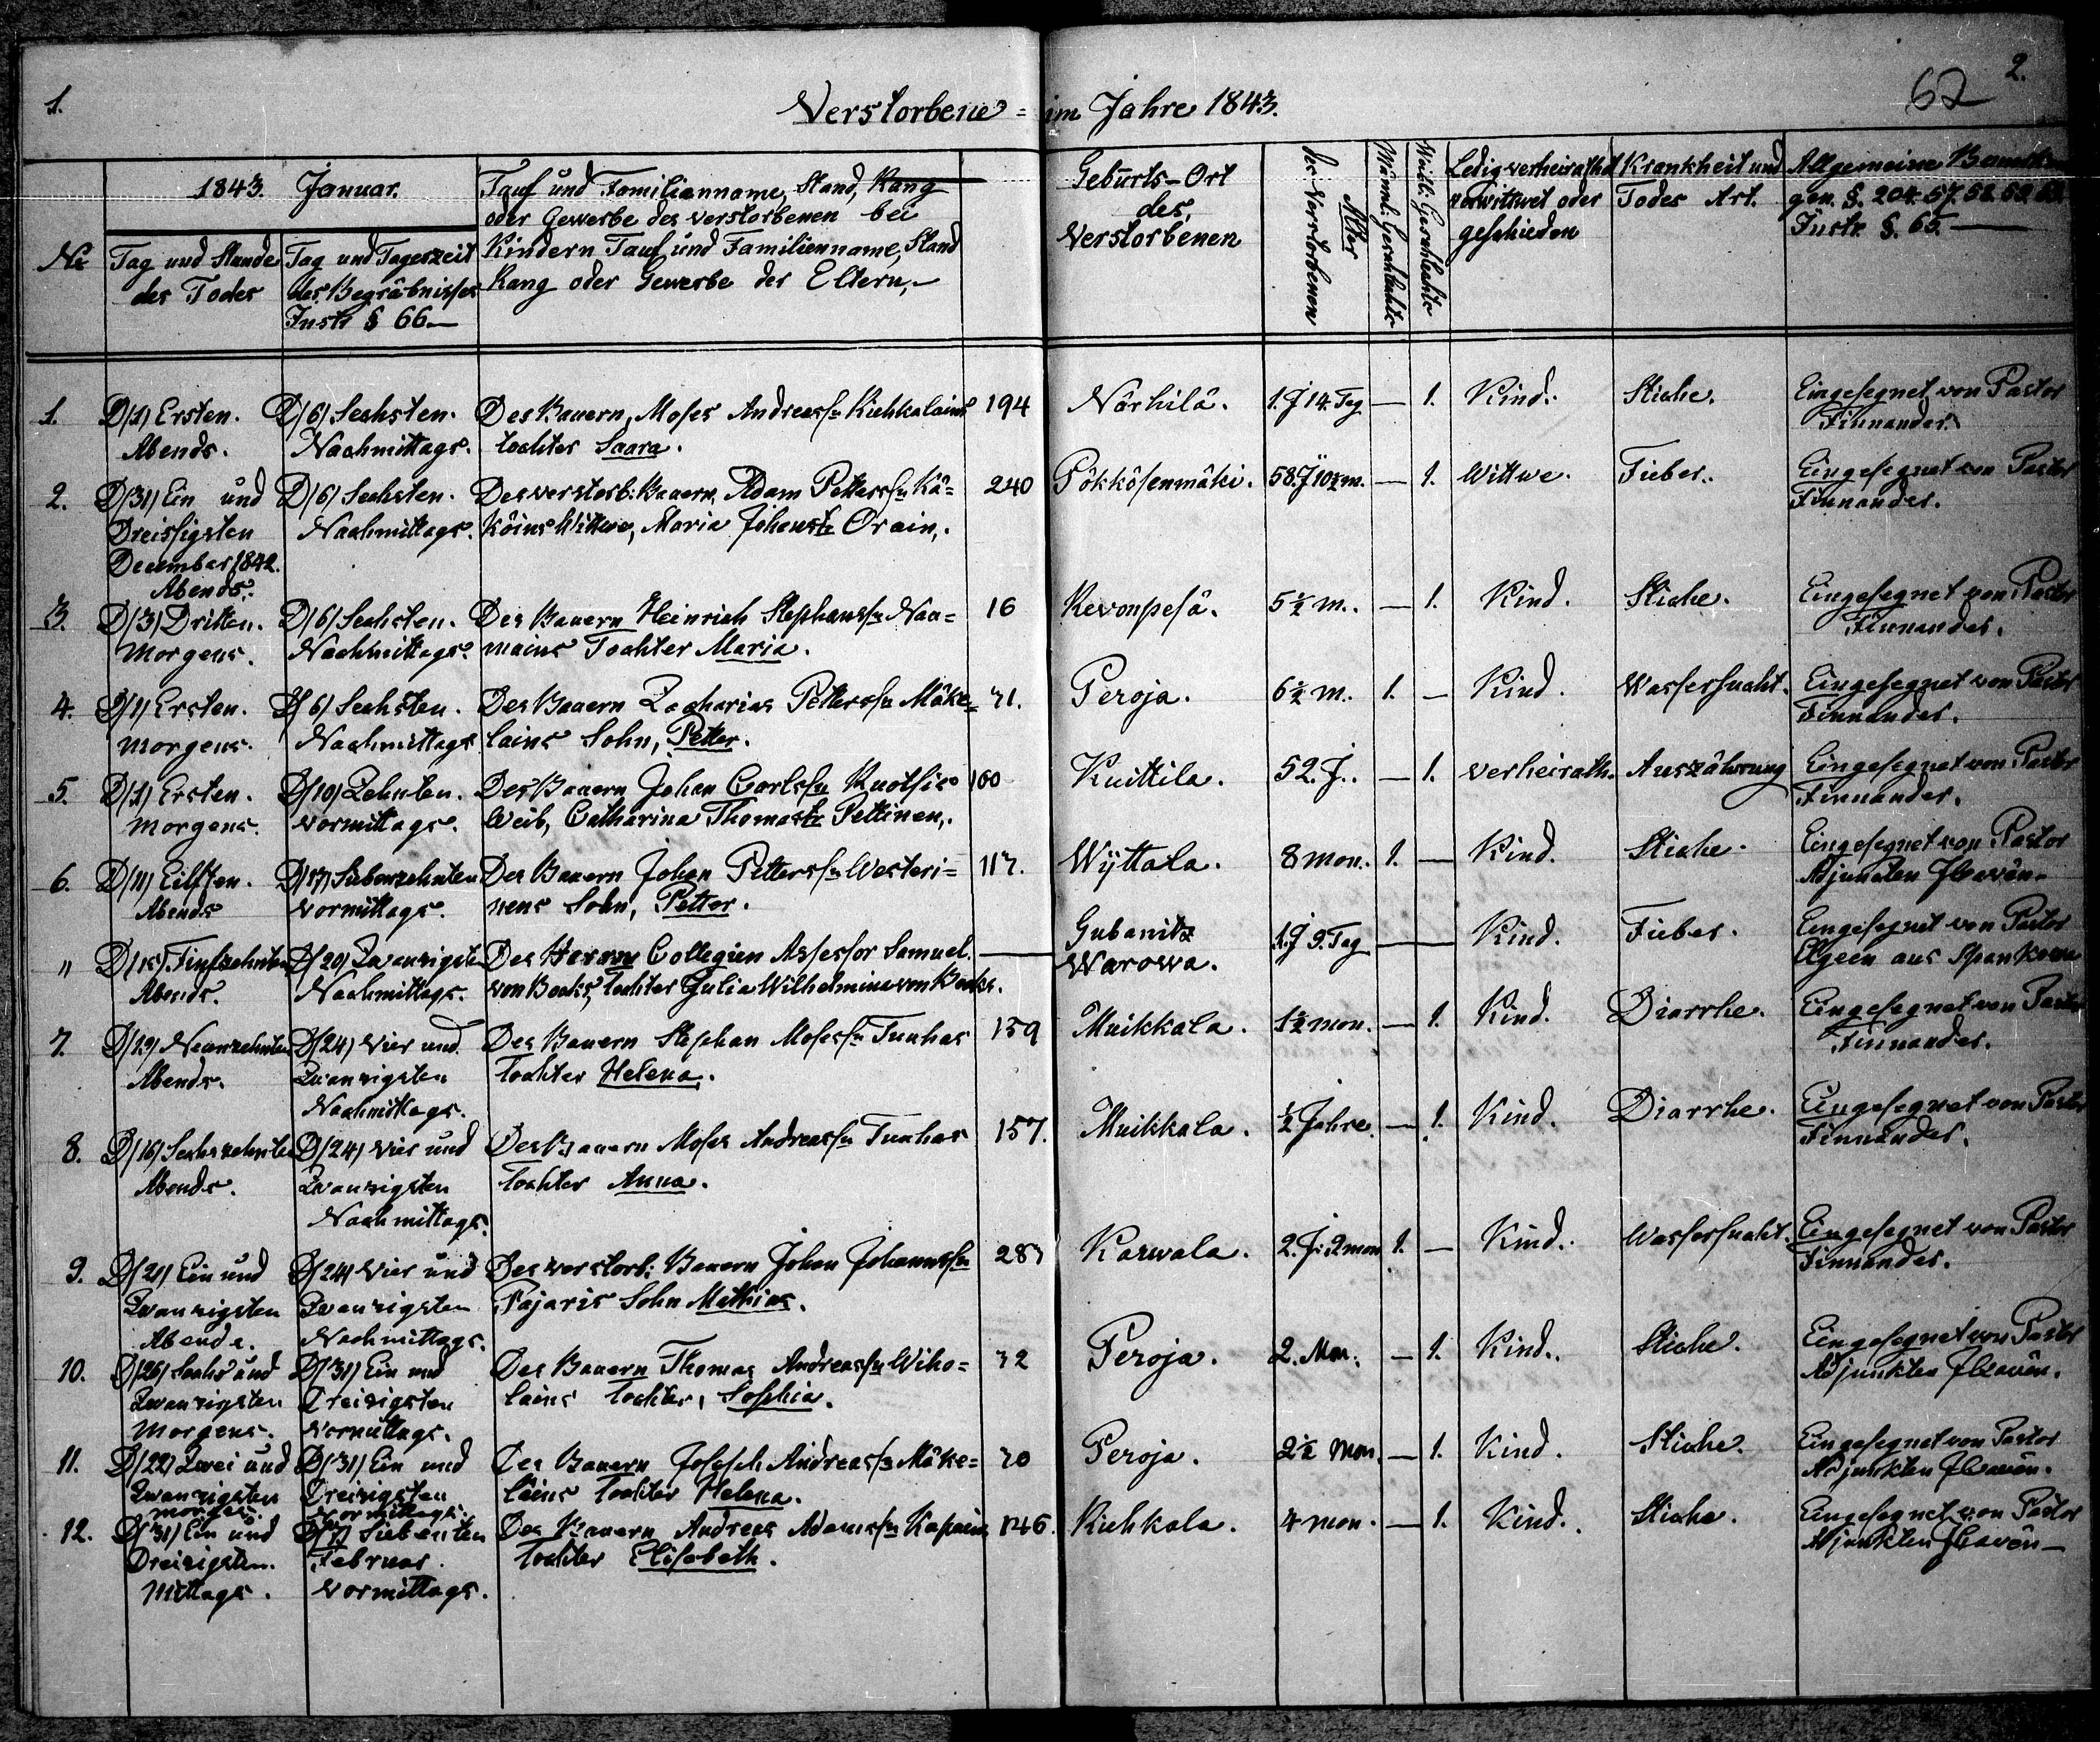 1.
Verstorbene = im Jahre 1843.
62
2.
1843. Januar.
№
Tag und Stunde
des Todes
Tag und Tageszeit
des Begräbnisses
Instr § 66.—
Tauf und Familienname, Stand, Rang
oder Gewerbe des verstorbenen bei
Kindern Tauf und Familienname, Stand
Rang oder Gewerbe der Eltern,—
Gebūrts-Ort
des,
Verstorbenen
Alter
des Verstorbenen
Männl: Geschlechts
Weibl: Geschlechts
Ledig verheirathet
verwittwet oder
geschieden
Krankheit und
Todes Art.
Allgemeine
gen. §. 204. 57. 58. 59.
Instr. §. 65.—
1. D/1) Ersten. D/6) Sechsten. Des Bauern, Moses Andreassn Kiehkalains 194 Nörhilä. 1. J 14. Tag — 1. Kind. Stiche. Eingesegnet von Pastor
Abends. Nachmittags. tochter Saara. Finnander.
2. D/31) Ein und D/6) Sechsten. Des verstorb: Bauern, Adam Petterssn Kä= 240 Pökkösenmäki. 58. J 10½ m. — 1. Wittwe. Fieber. Eingesegnet von Pastor
Dreissigsten Nachmittags. köins Wittwe, Maria Johanstr Orain,. Finnander.
December 1842.
Abends.
3. D/3) Dritten. D/6) Sechsten. Des Bauern Heinrich Stephanssn Naa= 16 Revonpesä. 5½ m. — 1. Kind. Stiche. Eingesegnet von Pastor
Morgens. Nachmittags. mains Tochter Maria. Finnander.
4. D/1) Ersten. D/6) Sechsten. Des Bauern Zacharias Petterssn Mäke= 71. Peroja. 6½ m. 1. — Kind. Wassersucht. Eingesegnet von Pastor
Morgens. Nachmittags lains Sohn, Petter. Finnander.
5. D/1) Ersten. D/10) Zehnten. Des Bauern Johan Carlssn Ruotsis 160 Kuittila. 52. J. — 1. verheirath. Auszährung Eingesegnet von Pastor
Morgens. Vormittags. Weib, Catharina Thomastr Pettinen,. Finnander.
6. D/11) Eilften. D/17) Siebenzehnten Des Bauern Johan Petterssn Westeri= 117. Wÿttala. 8 mon. 1. — Kind. Stiche. Eingesegnet von Pastor
Abends Vormittags. nens Sohn, Petter. Adjuncten
" D/15) Finfzehnten D/20) Zwanzigsten Des Herrn Collegien Assessor Samuel — Gubanitz 1. J 9. Tag — — Kind. Fieber. Eingesegnet von Pastor
Abends. Nachmittags. von Books, tochter Julia Wilhelmina von Books. Warowa. aus Spankowa
7. D/19) Neunzehnten D/24) Vier und Des Bauern Stephan Mosessn Tuuhas 159 Muikkala. 1½ mon. — 1. Kind. Diarrhe. Eingesegnet von Pastor
Abends. Zwanzigsten tochter Helena. Finnander.
Nachmittags.
8. D/16) Sechszehnten D/24) Vier und Des Bauern Moses Andreassn Tuuhas 157. Muikkala. ½ Jahre. — 1. Kind. Diarrhe. Eingesegnet von Pastor
Abends. Zwanzigsten tochter Anna. Finnander.
Nachmittags.
9. D/21) Ein und D/24) Vier und Des verstorb: Bauern Johan Johanssn 287 Karwala. 2. J. 2 mon 1. — Kind. Wassersucht. Eingesegnet von Pastor
Zwanzigsten Zwanzigsten Pajaris Sohn Mathias. Finnander.
Abends. Nachmittags.
10. D/26) Sechs und D/31) Ein und Des Bauern Thomas Andreassn Wiho= 72 Peroja. 2. Mon. — 1. Kind. Stiche. Eingesegnet von Pastor
Zwanzigsten Dreizigsten lains tochter, Sophia. Adjunkten
Morgens. Vormittags.
11. D/22) Zwei und D/31) Ein und Des Bauern Joseph Andreassn Mäke= 70 Peroja. 2½ Mon. — 1. Kind. Stiche. Eingesegnet von Pastor
Zwanzigsten Dreizigsten läins tochter Helena. Adjunkten
morgens. Vormittags.
12. D/31) Ein und D/7) Siebenten Des Bauern Andreas Adamssn Kapains 146. Kiehkala. 4 mon. — 1. Kind. Stiche. Eingesegnet von Pastor
Dreizigsten. Februar. tochter Elisabeth. Adjunkten
Mittags. Vormittags.